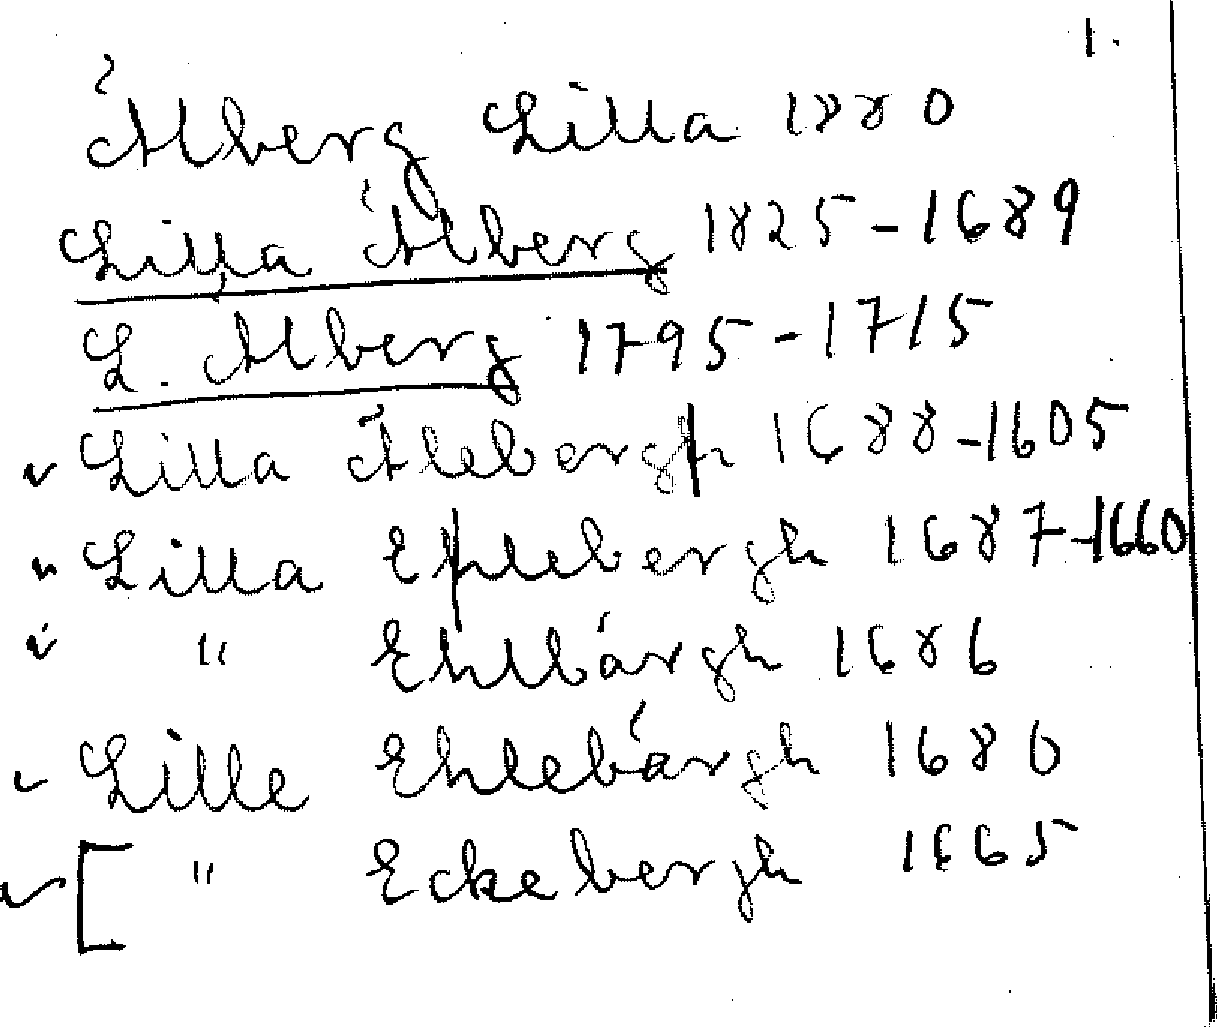 1.
Älberg Lilla 1880
Lilla Älberg 1825-1689
L. Alberg 1795-1715
v Lilla Älebergh 1688-1605
v Lilla Ehlebergh 1687-1660
v " Ehlbärgh 1686
v Lille Ehlebärgh 1680
v [ " Eckebergh 1665